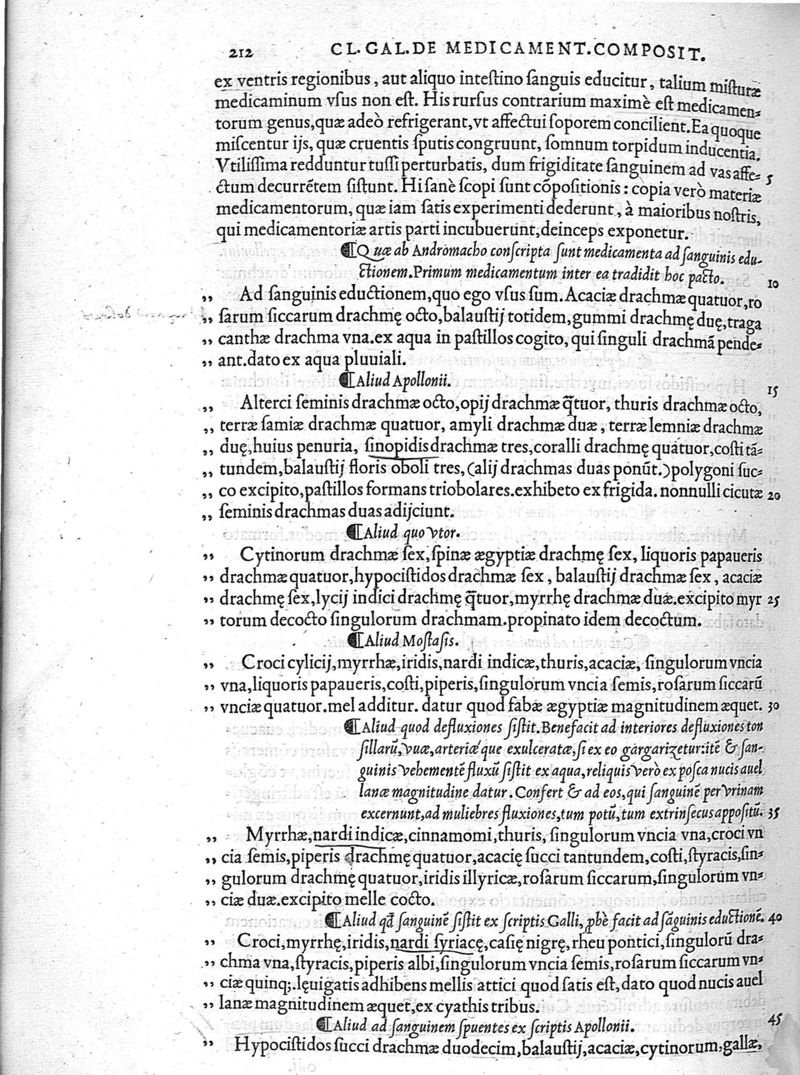 212 CL. GAL. DE MEDICAMENT. COMPOSIT.
ex ventris regionibus, aut aliquo inteſtino ſanguis educitur, talium miſturæ
medicaminum vſus non eſt. His rurſus contrarium maximè eſt medicamen-
torum genus, quæ adeò refrigerant, vt affectui ſoporem concilient. Ea quoque
miſcentur ijs, quæ cruentis ſputis congruunt, ſomnum torpidum inducentia.
Vtiliſſima redduntur tuſſi perturbatis, dum frigiditate ſanguinem ad vas affe- 5
ctum decurrētem ſiſtunt. Hi ſanè ſcopi ſunt cōpoſitionis: copia verò materiæ
medicamentorum, quæ iam ſatis experimenti dederunt, à maioribus noſtris,
qui medicamentoriæ artis parti incubuerunt, deinceps exponetur.
¶Quæ ab Andromacho conſcripta ſunt medicamenta ad ſanguinis edu-
ctionem. Primum medicamentum inter ea tradidit hoc pacto. 10
„ Ad ſanguinis eductionem, quo ego vſus ſum. Acaciæ drachmæ quatuor, ro
„ ſarum ſiccarum drachmę octo, balauſtij totidem, gummi drachmę duę, traga
„ canthæ drachma vna. ex aqua in paſtillos cogito, qui ſinguli drachmā pende-
„ ant. dato ex aqua pluuiali.
¶Aliud Apollonii. 15
„ Alterci ſeminis drachmæ octo, opij drachmæ q̄tuor, thuris drachmæ octo,
„ terræ ſamiæ drachmæ quatuor, amyli drachmæ duæ, terræ lemniæ drachmæ
„ duę, huius penuria, ſinopidis drachmæ tres, coralli drachmę quatuor, coſti tā-
„ tundem, balauſtij floris oboli tres, (alij drachmas duas ponūt.) polygoni ſuc-
„ co excipito, paſtillos formans triobolares. exhibeto ex frigida. nonnulli cicutæ 20
„ ſeminis drachmas duas adijciunt.
¶Aliud quo vtor.
„ Cytinorum drachmæ ſex, ſpinæ ægyptiæ drachmę ſex, liquoris papaueris
„ drachmæ quatuor, hypociſtidos drachmæ ſex, balauſtij drachmæ ſex, acaciæ
„ drachmę ſex, lycij indici drachmę q̄tuor, myrrhę drachmæ duæ. excipito myr 25
„ torum decocto ſingulorum drachmam. propinato idem decoctum.
¶Aliud Moſtaſis.
„ Croci cylicij, myrrhæ, iridis, nardi indicæ, thuris, acaciæ, ſingulorum vncia
„ vna, liquoris papaueris, coſti, piperis, ſingulorum vncia ſemis, roſarum ſiccarū
„ vnciæ quatuor. mel additur. datur quod fabæ ægyptiæ magnitudinem æquet. 30
¶Aliud quod defluxiones ſiſtit. Benefacit ad interiores defluxiones ton
ſillarū, vuæ, arteriæ que exulceratæ, ſi ex eo gargarizetur: itē & ſan-
guinis vehementē fluxū ſiſtit ex aqua, reliquis verò ex poſca nucis auel
lanæ magnitudine datur. Confert & ad eos, qui ſanguinē per vrinam
excernunt, ad muliebres fluxiones, tum potū, tum extrinſecus appoſitū. 35
„ Myrrhæ, nardi indicæ, cinnamomi, thuris, ſingulorum vncia vna, croci vn
„ cia ſemis, piperis drachmę quatuor, acacię ſucci tantundem, coſti, ſtyracis, ſin-
„ gulorum drachmę quatuor, iridis illyricæ, roſarum ſiccarum, ſingulorum vn-
„ ciæ duæ. excipito melle cocto.
¶Aliud qđ ſanguinē ſiſtit ex ſcriptis Galli, ꝓbè facit ad ſāguinis eductionē. 40
„ Croci, myrrhę, iridis, nardi ſyriacę, caſię nigrę, rheu pontici, ſingulorū dra-
„ chma vna, ſtyracis, piperis albi, ſingulorum vncia ſemis, roſarum ſiccarum vn-
„ ciæ quinq;. lęuigatis adhibens mellis attici quod ſatis eſt, dato quod nucis auel
„ lanæ magnitudinem æquet, ex cyathis tribus.
¶Aliud ad ſanguinem ſpuentes ex ſcriptis Apollonii. 45
„ Hypociſtidos ſucci drachmæ duodecim, balauſtij, acaciæ, cytinorum, gallæ,